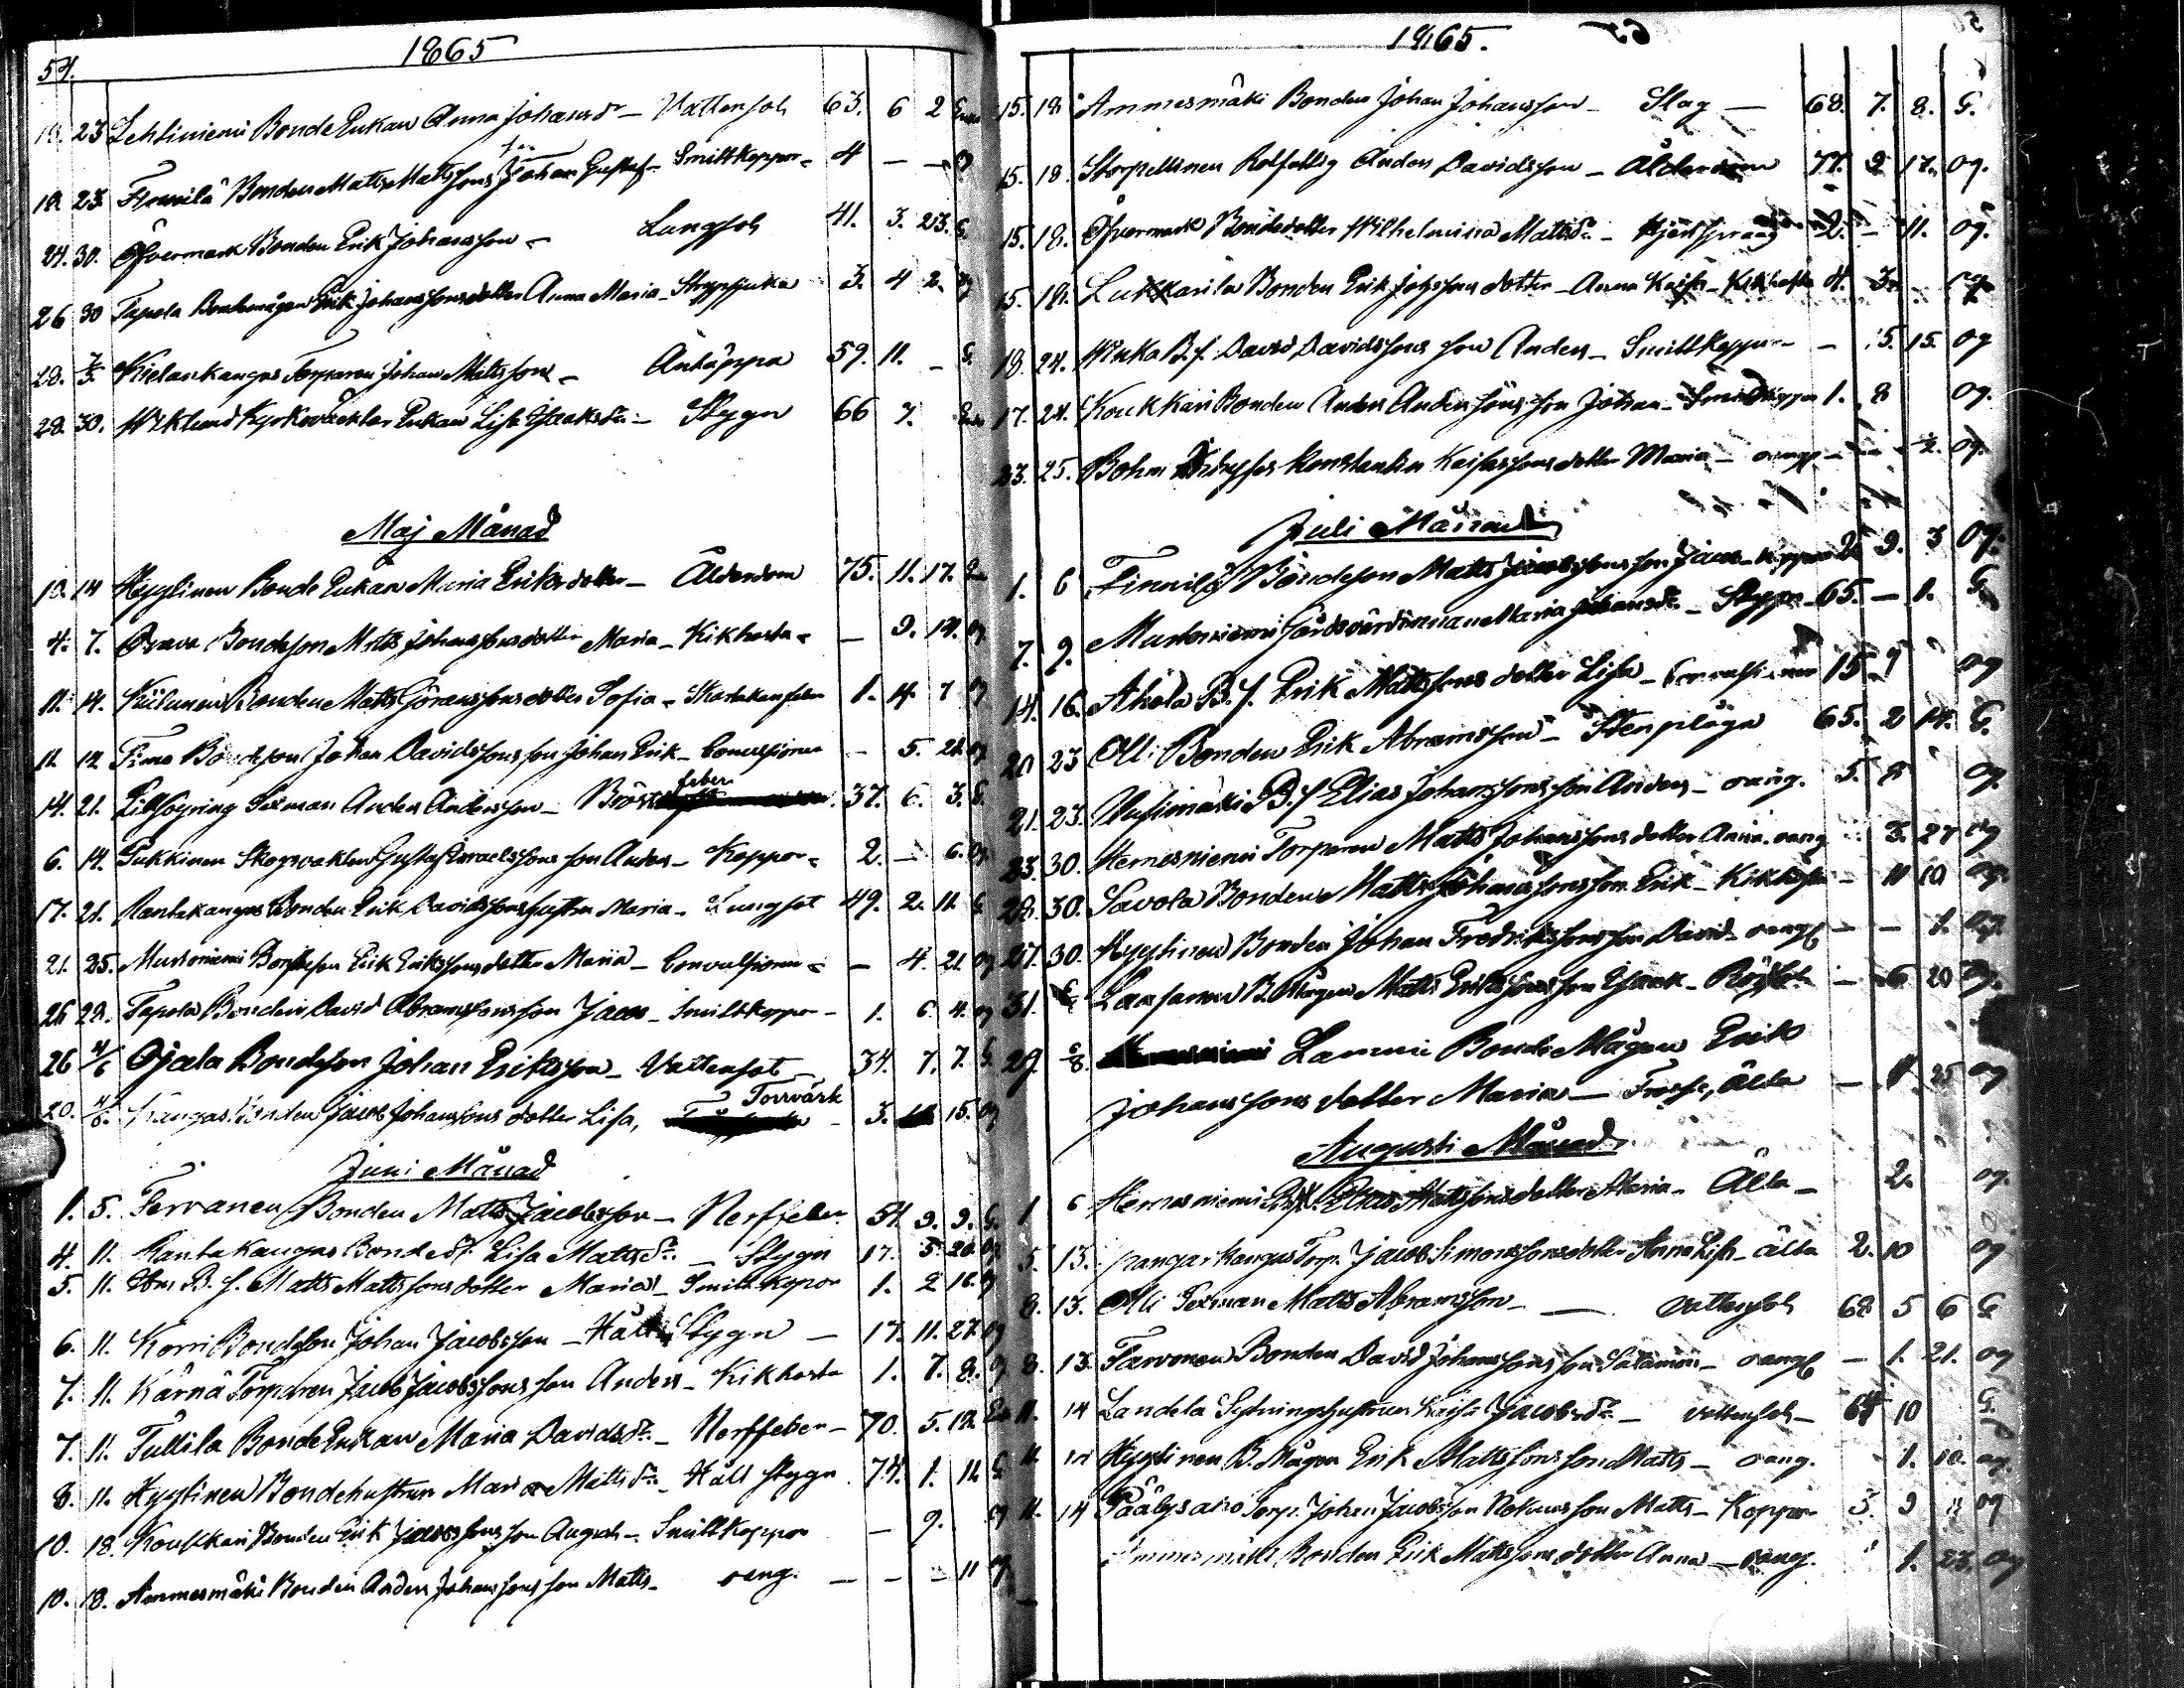 54.
1865
18. 23 Lehtiniemi Bonde Enkan Anna Johansdr - Vattensot 63. 6 2 Enka
18. 23. Bonden Matts Mattssons son Johan Gustaf - Smittkoppor - 4 — — og
24. 30. Öfvermark Bonden Erik Johansson - Lungsot 41. 3. 23. G.
26 30 Tapola Bondemågen Erik Johanssons dotter Anna Maria - Strypsjuka 3. 4 2. og
28. 7/5. Kielankangas Torparen Johan Mattsson - Andtäppa 59. 11. - G.
28. 30. Wiklund Kyrkovaktar Enkan Lisa Isaksdr - Stygn 66 7. Enka
Maj Månad
10. 14 Hyytinen Bonde Enkan Maria Eriksdotter - Ålderdom 75. 11. 17. En
4. 7. Orava Bondeson Matts Johanssons dotter Maria - Kikhosta - — 9. 14. og
11. 14. Kiilunen Bonden Matts Göranssons dotter Sofia - Skarlakansfeber 1. 4. 7 og
11. 14. Bondeson Johan Davidssons son Johan Erik - Convulsioner - 5. 21. og
14. 21. Lillsoyring Sexman Anders Andersson - Bröst feber 37. 6. 3. G.
6. 14. Pukkinen Skogvaktar Gustaf Israelssons son Anders - Koppor - 2. - 6. og.
17. 21. Rantakangas Bonden Erik Davidssons hustru Maria - Lungsot 49. 2. 11. G
21. 25. Mustoniemi Bondeson Erik Erikssons dotter Maria - Convulsioner - — 4. 21. og
26 28. Tapola Bonden David Abramssons son Jacob - Smittkoppor - 1. 6. 4. og
26 4/6 Ojala Bondeson Johan Eriksson - Vattensot - 34. 7. 7. G.
20. 4/6. Kangas Bonden Jacob Johanssons dotter Lisa, Torrvärk - 3. 15. og
Juni Månad
1. 5. Tervanen Bonden Matts Jacobsson - Nerffeber 54. 9. 9. G.
4. 11. Rantakangas Bonde dr. Lisa Mattsdr. - Stygn 17. 5. 20. og
5. 11. B. s. Matts Mattssons dotter Maria - Smittkoppor 1. 2 18. og
6. 11. Korri Bondeson Johan Jacobsson - Håll Stygn — 17. 11. 27. og
7. 11. Kärnä Torparen Jacob Jacobssons son Anders - Kikhosta 1. 7. 8. og
7. 11. Tullila Bonde Enkan Maria Davidsdr. - Nerffeber - 70. 5. 12. Enk
8. 11. Hyytinen Bondehustrun Maria Mattsdr. - Håll stygn 74. 1. 11. G
10. 18. Koukkari Bonden Erik Jacobssons son August - Smittkoppor — 9. og
10. 18. Ammesmäki Bonden Anders Johanssons son Matts - oang. — — — 11 og
1865.
15. 18. Ammesmäki Bonden Johan Johansson - Slag — 68. 7. 8. G.
15. 18. Storpellinen Rotfattig Anders Davidsson - Ålderdom 77. 9 17. og.
15. 18. Öfvermark Bondedotter Wilhelmina Mattsdr. - 2. - 11. og.
15. 18. Lukkarila Bonden Erik Johssons dotter - Anna Kaisa - Kikhosta 4. 3. - og
18. 24. B. s. David Davidssons son Anders - Smittkoppor - - 5. 15. og
17. 24. Koukkari Bonden Anders Anderssons son Johan - Smittkoppor 1. 8 og.
23. 25. Bohm Konstantin dotter Maria - oang. - - - ½. og.
Juli Månad
1. 6 Bondeson Matts Jacobssons son Jacob - koppor 2. 9. 3 og.
7. 9. Mustoniemi Maria Johansdr. - Stygn - 65. — 1. G.
14. 16. Ahola B. s. Erik Mattssons dotter Lisa - Convulsioner 15 7 og
20 23 Olli Bonden Erik Abramsson - Stenplåga 65. 2 14. G.
21. 23. B. s. Elias Johanssons son Anders - oang. 5. 8 og.
23. 30. Hernesniemi Torparen Matts Johanssons dotter Anna - oang 3. 27 og
28. 30. Savola Bonden Matts Johanssons son Erik - Kikhosta - 11 10 og.
27. 30. Hyytinen Bonden Johan Fredrikssons son David - oang. — — 1. og.
31. B. Mågen Matts Erikssons son Isaak - Rödsot — 6 20 og.
29. 6/8. Lammi Bonde Mågen Erik
Johanssons dotter Maria - Älta — 11. 25 og
Augusti Månad
1 6 Hernesniemi Mattssons dotter Maria - Älta - 2. og.
5. 13. Torp. Jacob Simonssons dotter Anna Lisa - älta 2. 10 og
8. 13. Olli Sexman Matts Abramsson - — vattensot 68 5 6 G
8. 13. Tarvonen Bonden David Johanssons son Salamon - oang. — 1. 21. og
11. 14 Landela Sytningshustrun Kaisa Jacobsdr. - vattensot - 64 10 G.
11. 14 Hyytinen B. Mågen Erik Mattssons son Matts - oang. - 1. 10. og.
11. 14 Päälysaho Torp. Johan Jacobsson son Matts - Koppor 3. 9 og
Ammesmäki Bonden Erik Mattssons dotter Anna - oang. 1. 23. og